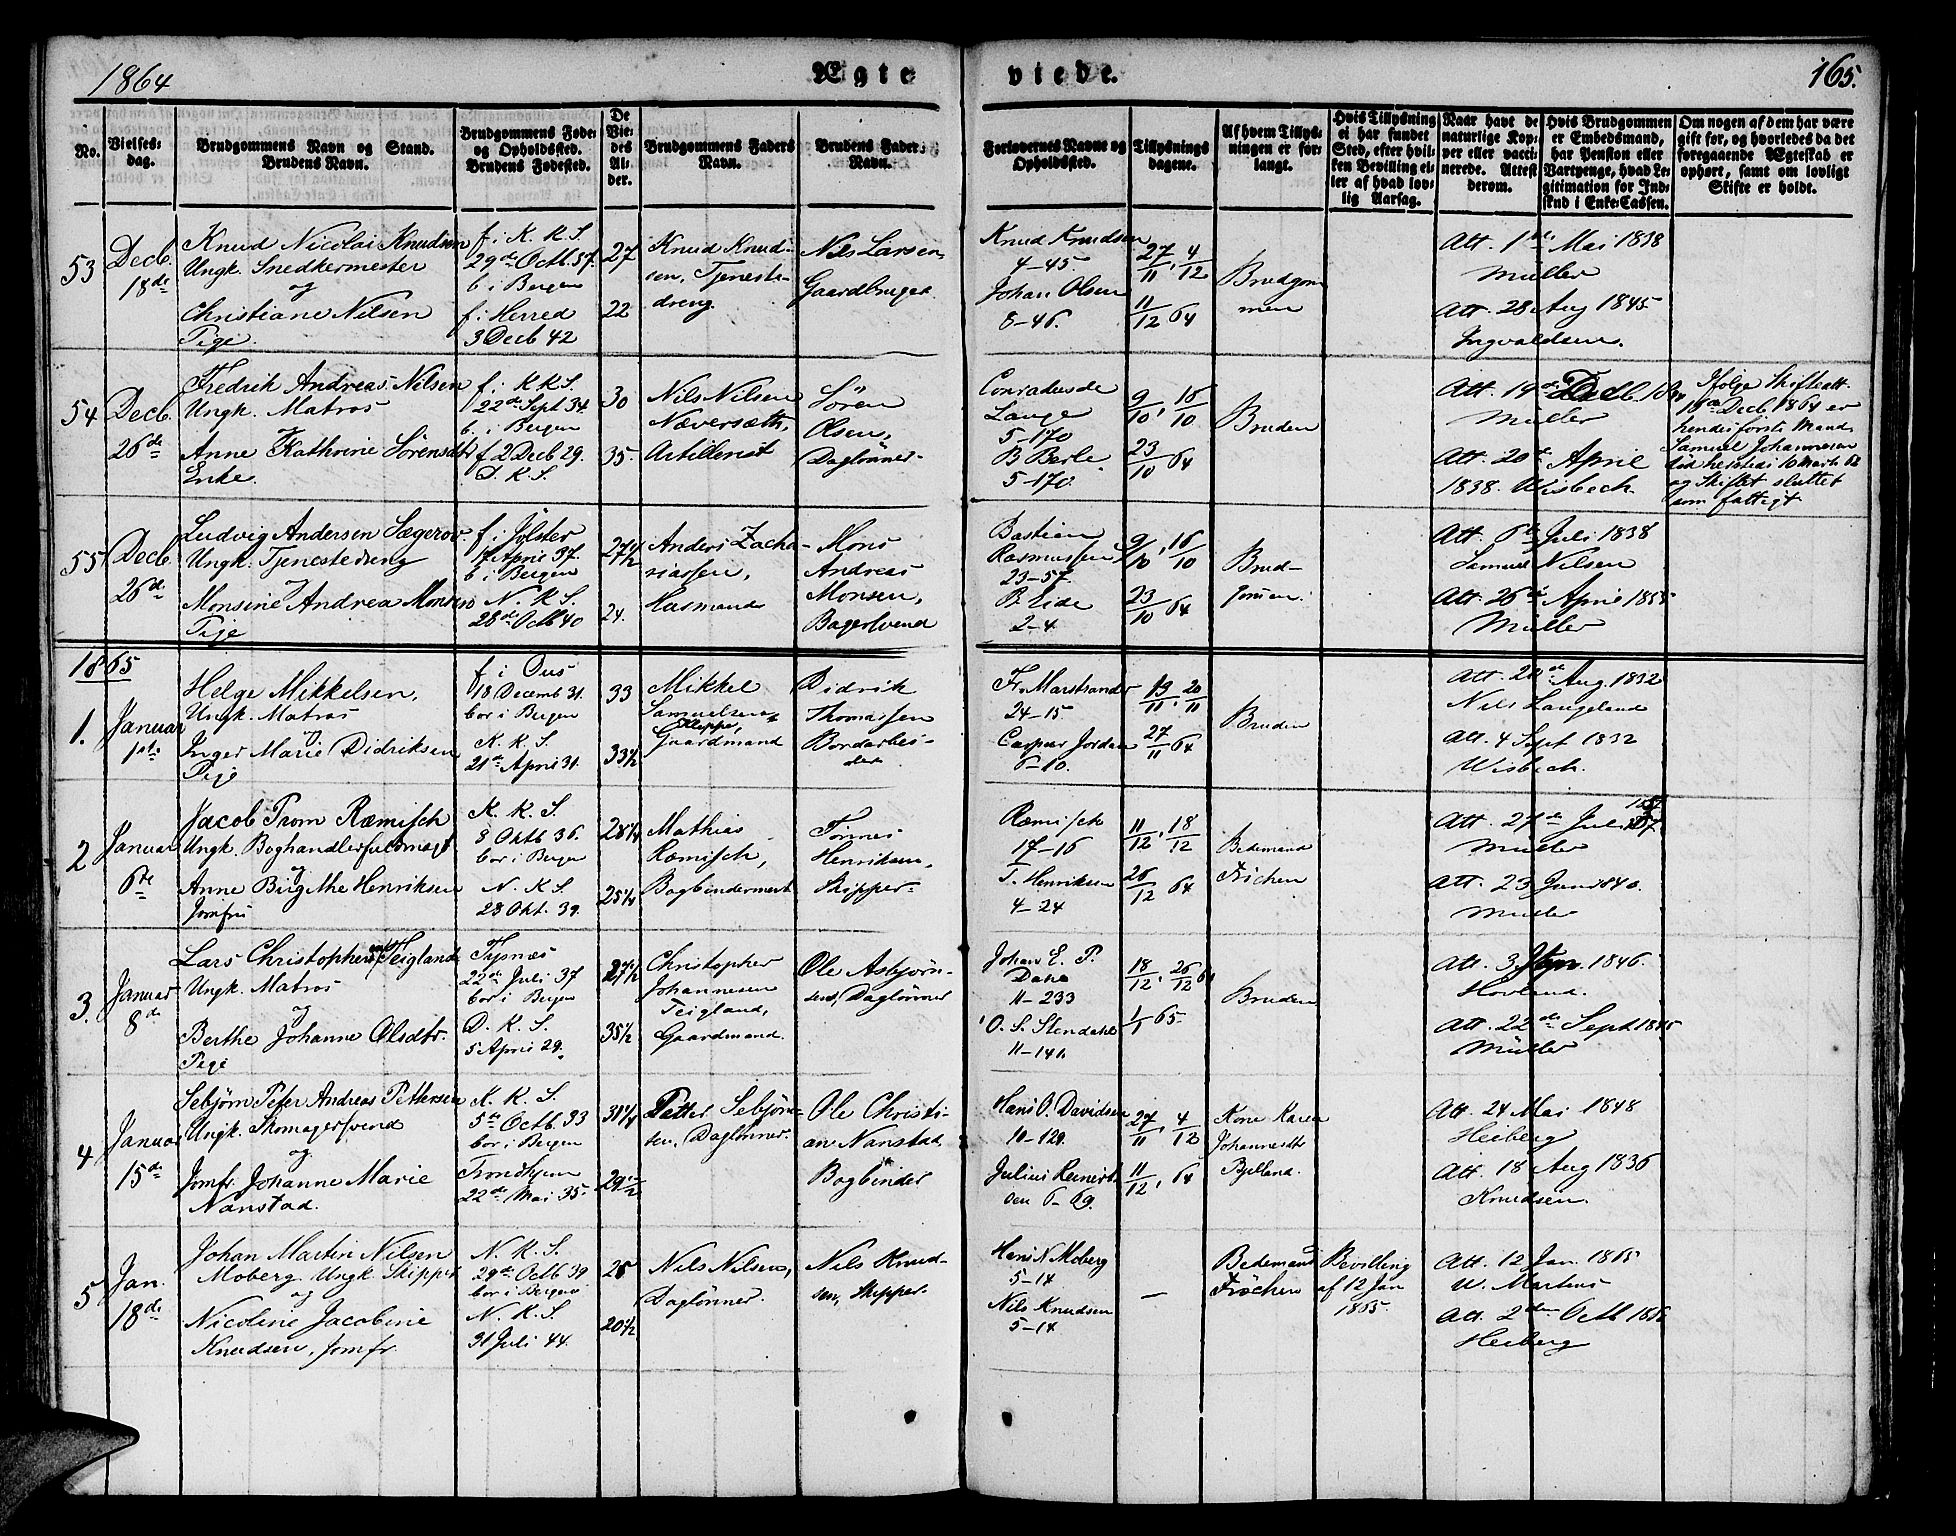 1864
Ægte
viede.
165.
No.
Vielses-
dag.
Brudgommens Navn og Stand.
Brudens Navn.
Brudgommens Føde-
og Opholdssted.
Brudens Fødested.
De
Vie-
des
Al-
der.
Brudgommens Faders
Navn.
Brudens Faders
Navn.
Forlovernes Navne og
Opholdssted.
Tillysnings
dagene.
Af hvem Tillys-
ningen er for-
langt.
Hvis Tillysning
ei har fundet
Sted, efter hvil-
ken Bevilling el-
ler af hvad lov-
lig Aarsag.
Naar havt de
naturlige Kop-
per eller vacci-
nerede. Attest
derom.
Hvis Brudgommen
er Embedsmand,
har Pension eller
Vartpenge, hvad Le-
gitimation for Ind-
skud i Enke-Cassen.
Om nogen af dem har være
gift før, og hvorledes da det
foregaaende Ægteskab er
ophørt, samt om lovligt
Skifte er holdt.
53
Decb.
18de
Knud Nicolai Knudsen
Ungk. Snedkermester
og
Christiane Nilsen
Pige.
f i K. K. S.
29de Octb. 37.
b i Bergen
f i Herred
3 Decb 42
27
22
Knud Knud-
sen, Tjeneste-
dreng.
Nils Larsen,
Gaardbruger.
Knud Knudsen
4-45.
Johan Olsen
8-46.
27/11, 4/12
11/12 64
Brudgom
men
Att. 1ste Mai 1838
Müller
Att. 28 Aug 1845
Ingvaldsen.
54
Decb.
26de
Fredrik Andreas Nilsen
Ungk. Matros
Anne Kathrine Sörensdtr
Enke.
f. i K K S.
22de Sept 34.
b. i Bergen
f 2 Decb 29.
D. K. S.
30
35.
Nils Nilsen
Næversæth,
Artillerist
Sören
Olsen,
Daglønner
Conradus de
Lange
5-170
B Berle
5-170.
9/10, 16/10
23/10 64
Bruden
Att. 14de Decb.
Müller
Att. 20de April
1838. Wisbech
Ifølge Skifteatt.
Decb. 1864 er
hendes første Mand
Samuel Johannesen
og Skiftet sluttet
som fattigt
55
Decb.
26de
Ludvig Andersen
Ungk. Tjenestedreng
Monsine Andrea Monsen
Pige
f. i Jölster
April 37.
b i Bergen
N. K. S.
28de Octb 40
27 1/2
24.
Anders Zacha-
riassen,
Husmand
Mons
Andreas
Monsen,
Bagersvend
Bastian
Rasmussen
23-57.
B. Eide
2-4.
9/10, 16/10
23/10 64
Brud-
Att. 6te Juli 1838
Samuel Nilsen
Att. 26de April
Müller
1865
1.
Januar
1ste
Helge Mikkelsen,
Ungk. Matros
og
Inger Marie Didriksen
Pige
f i Ous
18 Decemb 31.
bor i Bergen
K. K. S.
21de April 31.
33
33 1/2
Mikkel
Samuelsen
Kleppe,
Gaardmand
Didrik
Thomassen
Bordarbei-
der
Fr. Marstrander
24-15
Casper Jordan
6-10.
13/11, 20/11
27/11 64
Bruden
Att. Aug. 1832
Nils Langeland
Att. 4 Sept 1832
Wisbech.
2
Januar
6te
Jacob Trom Ræmisch
Ungk. Boghandlerfuldmægt
og
Anne Birgithe Henriksen
Jomfru
K. K. S.
8 Octb 36.
bor i Bergen
N. K. S
28 Okt. 39.
28 1/4
25 1/4
Mathias
Ræmisch,
Bogbindermest
Tönnes
Henriksen,
Skipper.
Ræmisch
17-16
T. Henriksen
4-24
11/12, 18/12
26/12 64
Bedemand
Fröchen
Att. 27de Juli
Müller
Att. 23 Juni 1840.
Müller
3.
Januar
8de
Lars Christophersen Teigland
Ungk. Matros
og
Berthe Johanne Olsdtr.
Pige
Tysnæs
22de Juli 37
bor i Bergen
D. K. S.
5 April 29.
27 1/2
35 1/2
Christopher
Johannesen
Teigland,
Gaardmand.
Ole Asbjörn-
sen, Daglønner
Johan E. P.
Dahl
11-233
O. S. Stendahl
11-141.
18/12, 26/12 64
1/1 65.
Bruden
Att. 3 1846.
Hovland.
Att. 22de Sept 1845
Müller
4
Januar
15de
Sebjörn Peter Andreas Pettersen
Ungk. Skomagersvend
og
Jomfr. Johanne Marie
Nanstad.
K. K. S.
5te Octb. 33
bor i Bergen
Trondhjem
22de Mai 35.
31 1/4
29 1/2
Petter Sebjörn-
sen, Daglønner.
Ole Christi-
an Nanstad,
Bogbinder
Hans O. Davidsen
10-129.
Julius Reinert-
sen 6-69.
27/11, 4/12
11/12, 64
Kone Karen
Johannesdtr
Bjelland.
Att. 24 Mai 1848
Heiberg
Att. 18 Aug 1836
Knudsen.
5
Jan.
18de
Johan Martin Nilsen
Moberg Ungk Skipper
og
Nicoline Jacobine
Knudsen, Jomfr.
N. K. S.
29de Octb 39
bor i Bergen
N. K. S.
31 Juli 44.
25
20 1/2
Nils Nilsen,
Daglønner.
Nils Knud-
sen, Skipper.
Hans N Moberg
5-14
Nils Knudsen
5-14
—
Bedemand
Fröchen
Bevilling
af 12 Jan
1865
Att. 12 Jan. 1865
W. Martens
Att. 2den Octb
Heiberg